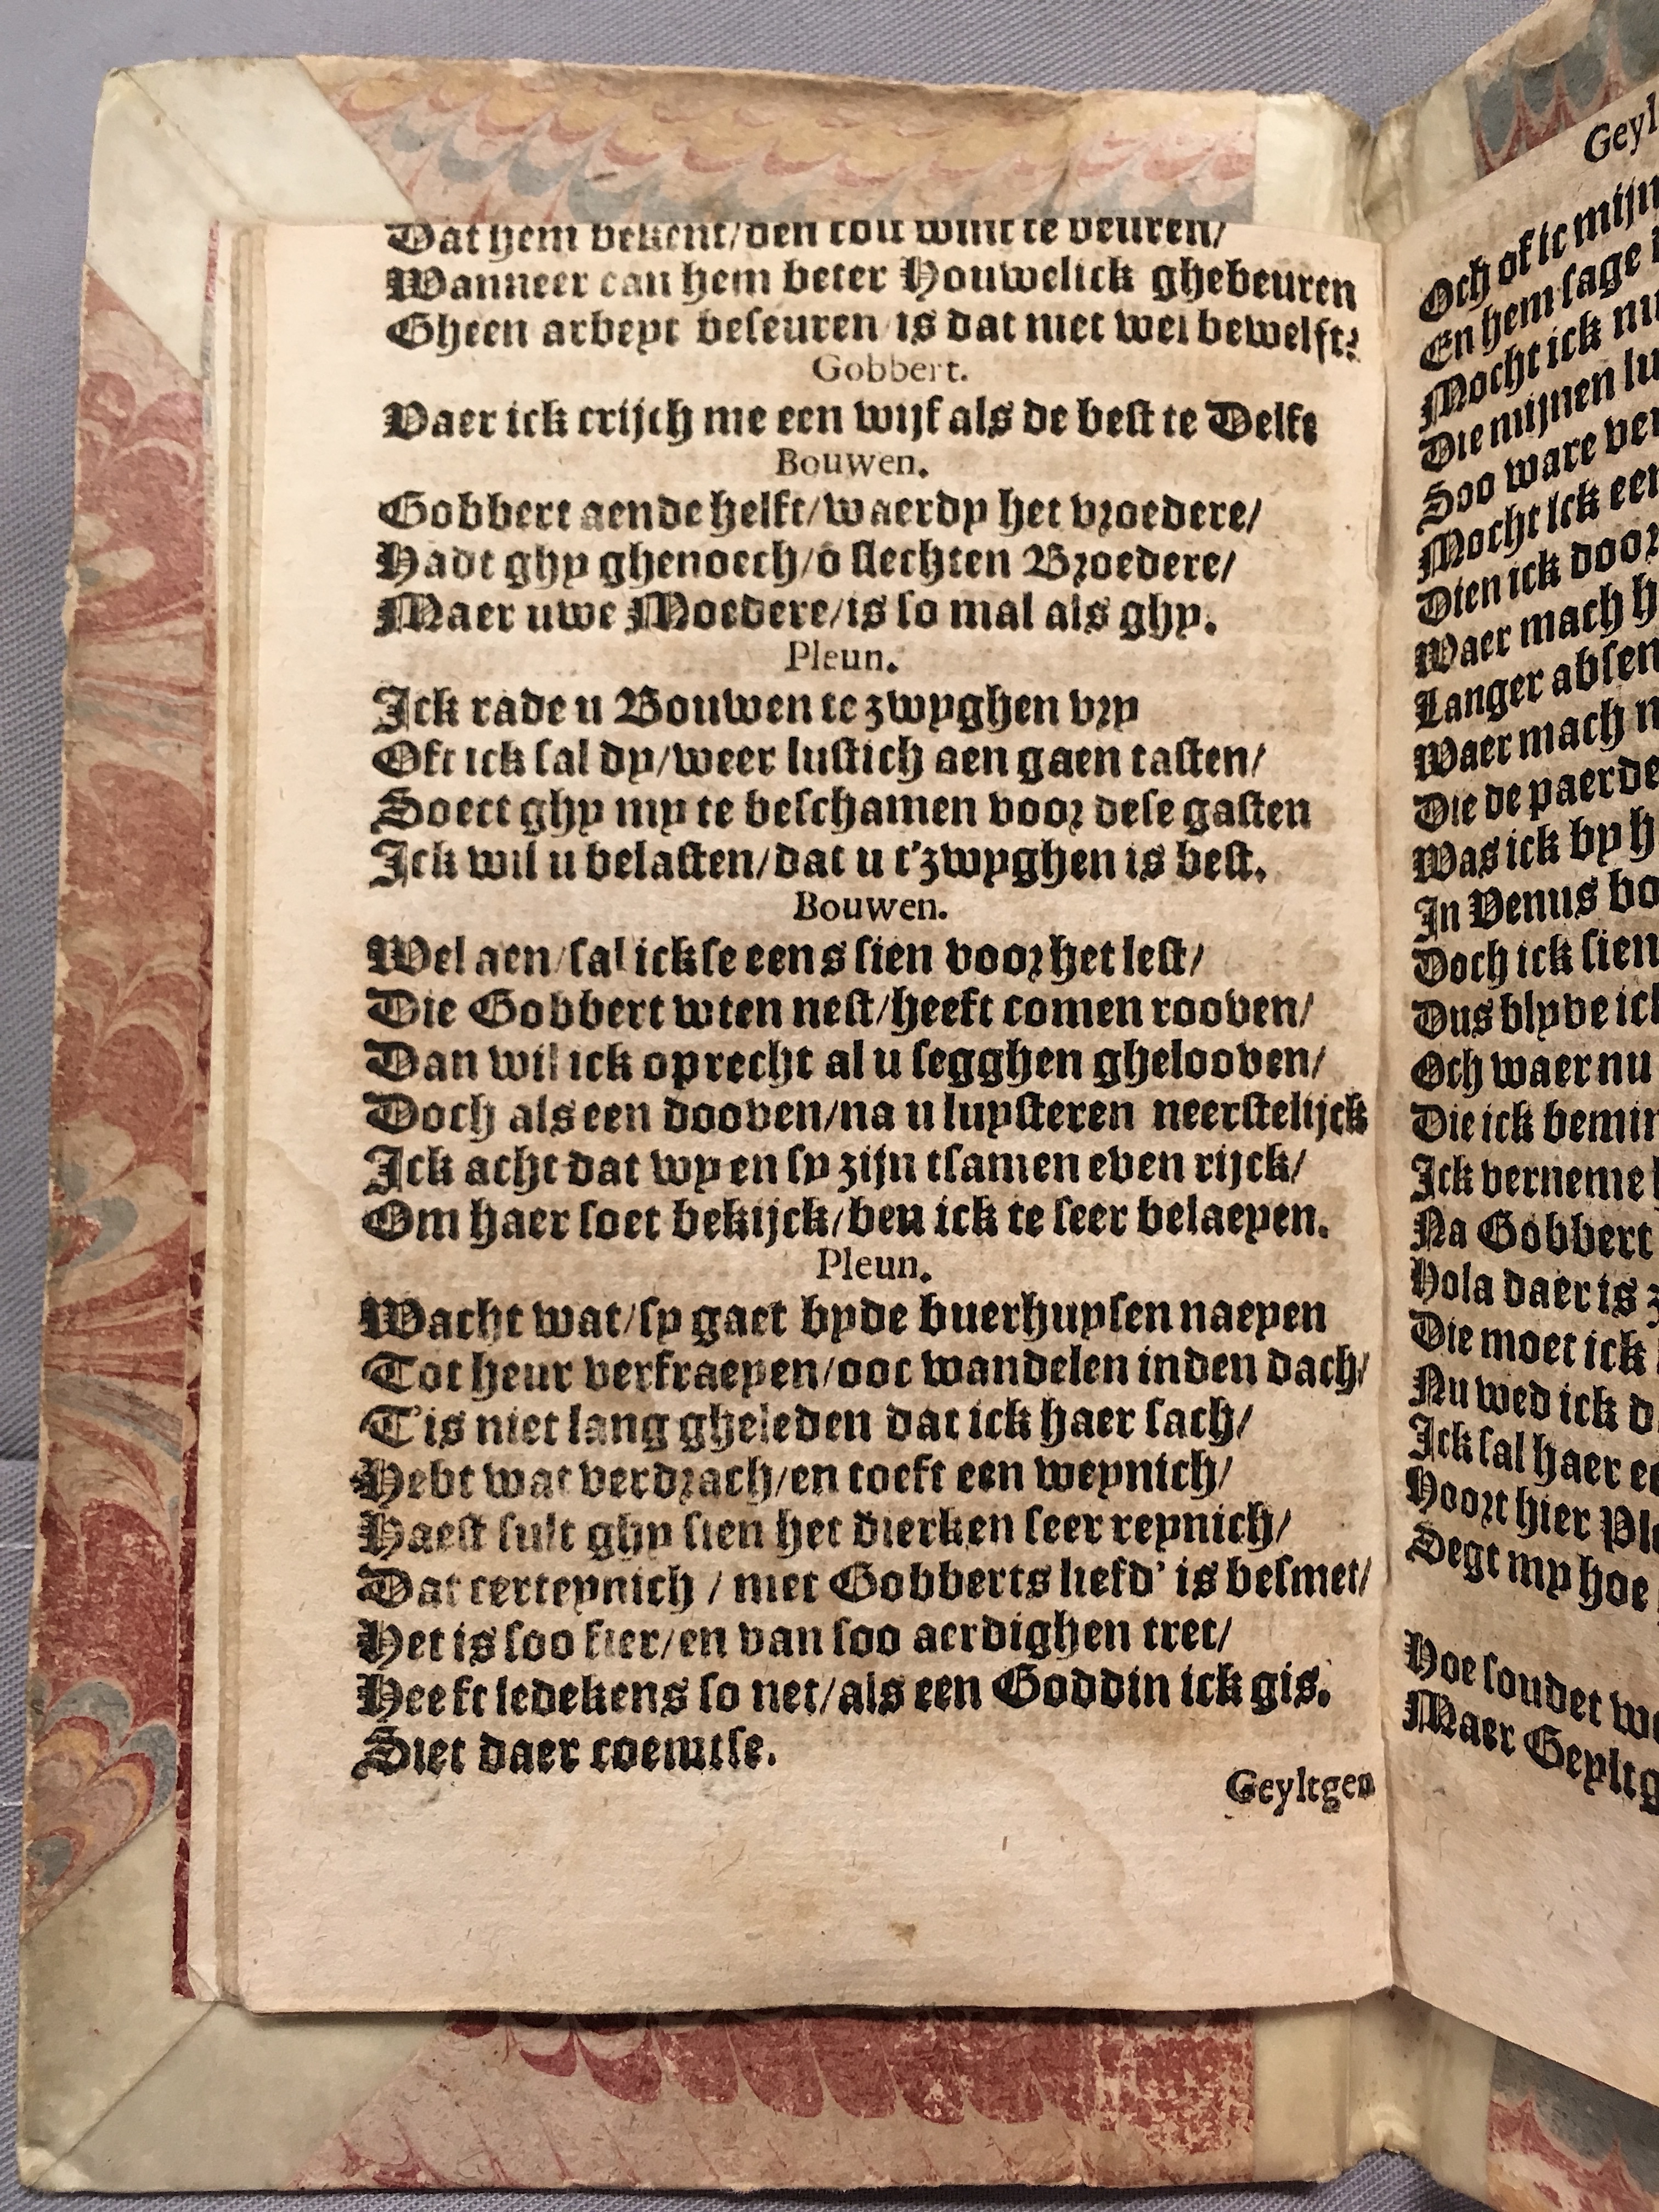 Dat hem bekent/den cout wint te beuren/
Wanneer can hem beter Houwelick ghebeuren
Gheen arbeyt beseuren/is dat niet wel bewelft?
Gobbert.
Vaer ick crijch me een wijf als de best te Delft
Bouwen.
Gobbert aende helft/waerdy het vroedere/
Hadt ghy ghenoech/ô slechten Broedere/
Maer uwe Moedere/is so mal als ghy.
Pleun.
Ick rade u Bouwen te zwyghen vry
Oft ick sal dy/weer lustich aen gaen tasten/
Soect ghy my te beschamen voor dese gasten
Ick wil u belasten/dat u t'zwyghen is best.
Bouwen.
Wel aen/sal ickse eens sien voor het lest/
Die Gobbert wten nest/heeft comen rooven/
Dan wil ick oprecht al u segghen ghelooven/
Doch als een dooven/na u luysteren neerstelijck
Ick acht dat wy en sy zijn tsamen even rijck/
Om haer soet bekijck/ben ick te seer belaeyen.
Pleun.
Wacht wat/sy gaet byde buerhuysen naeyen
Tot heur verfraeyen/ooc wandelen inden dach/
T'is niet lang gheleden dat ick haer sach/
Hebt wat verdrach/en toeft een weynich/
Haest sult ghy sien het dierken seer reynich/
Dat certeynich / met Gobberts liefd' is besmet/
Het is soo fier/en van soo aerdighen tret/
Heeft ledekens so net/als een Goddin ick gis.
Siet daer coemtse.
Geyltgen
Geyl
Och of ic mijn
En hem sage
Mocht ick nu
Die mijnen lu
Soo ware ver
Mocht ick een
Dien ick door
Waer mach h
Langer absen
Waer mach n
Die de paerde
Was ick by h
In Venus bo
Doch ick sien
Dus blyve ick
Och waer nu
Die ick bemin
Ick verneme
Na Gobbert
Hola daer is z
Die moet ick
Nu wed ick d
Ick sal haer ee
Hoort hier Ple
Segt my hoe
Hoe soudet we
Maer Geyltg